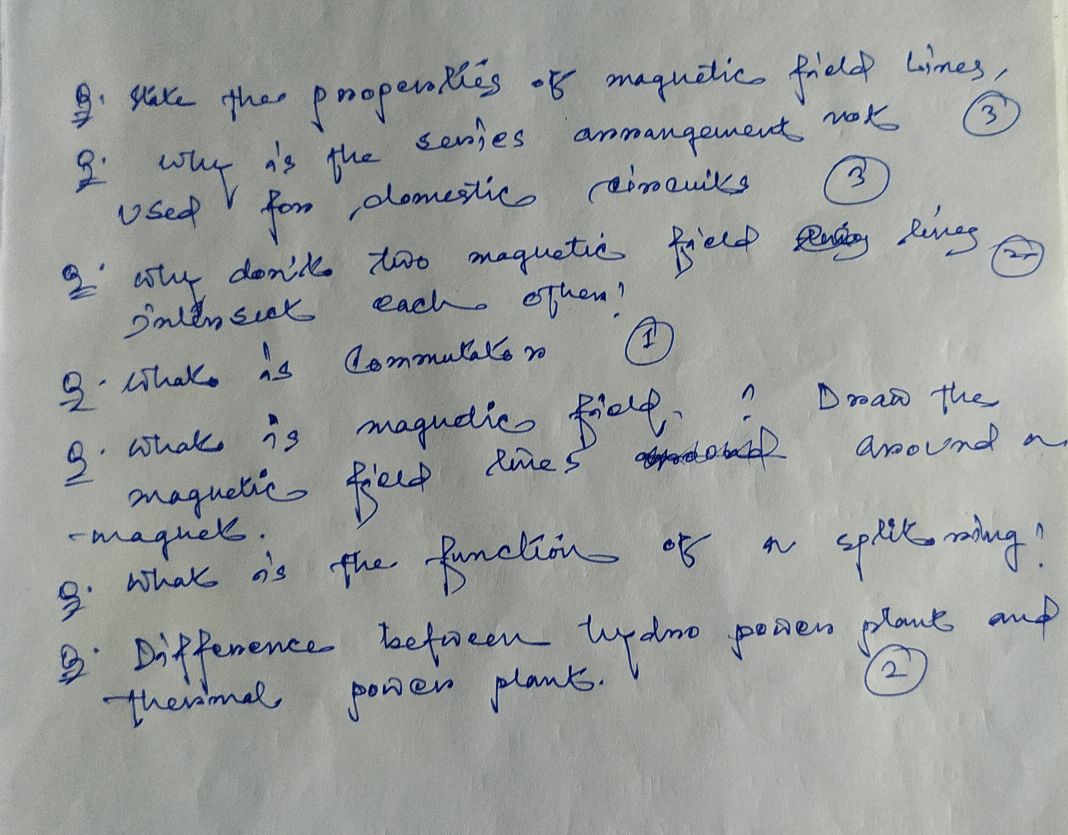 Q. State the properties of magnetic field lines, (3)
Q. Why is the series arrangement not
used for domestic circuits (3)
Q. Why don't two magnetic field lines (2)
intersect each other?
Q. What is Commutator (1)
Q. What is magnetic field. ? Draw the
magnetic field lines around a
-magnet.
Q. What is the function of a split ring?
Q. Difference between hydro power plant and
thermal power plant. (2)